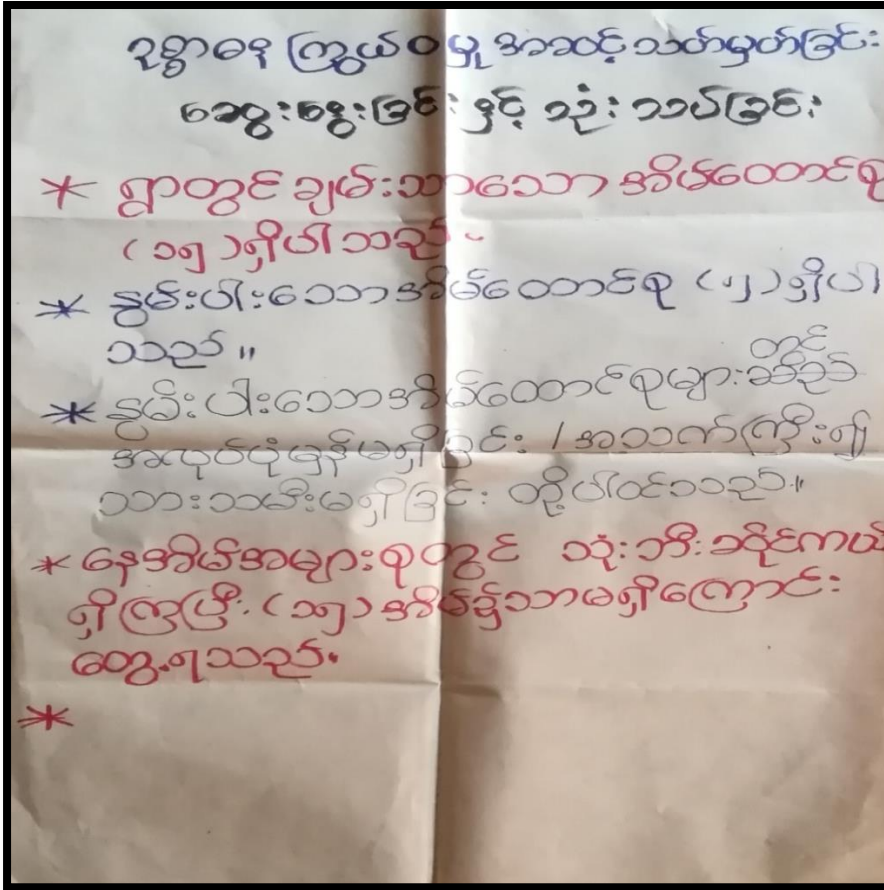 ဥစ္စာဓန ကြွယ်ဝမှု အဆင့်သတ်မှတ်ခြင်း
ဆွေးနွေးခြင်း နှင့် သုံးသပ်ခြင်း
* ရွာတွင် ချမ်းသာသော အိမ်ထောင်စု
(၁၅) ရှိပါသည်.
* နွမ်းပါးသောအိမ်ထောင်စု (၅) ရှိပါ
သည်။
* နွမ်းပါးသောအိမ်ထောင်စုများတွင်
အလုပ်ပုံမှန်မရှိခြင်း / အသက်ကြီး၍
သားသမီးမရှိခြင်း တို့ပါဝင်သည်။
* နေအိမ်အများစုတွင် သုံးဘီးဆိုင်ကယ်
ရှိကြပြီး (၁၅) အိမ်၌သာမရှိကြောင်း
တွေ့ရသည်.
*